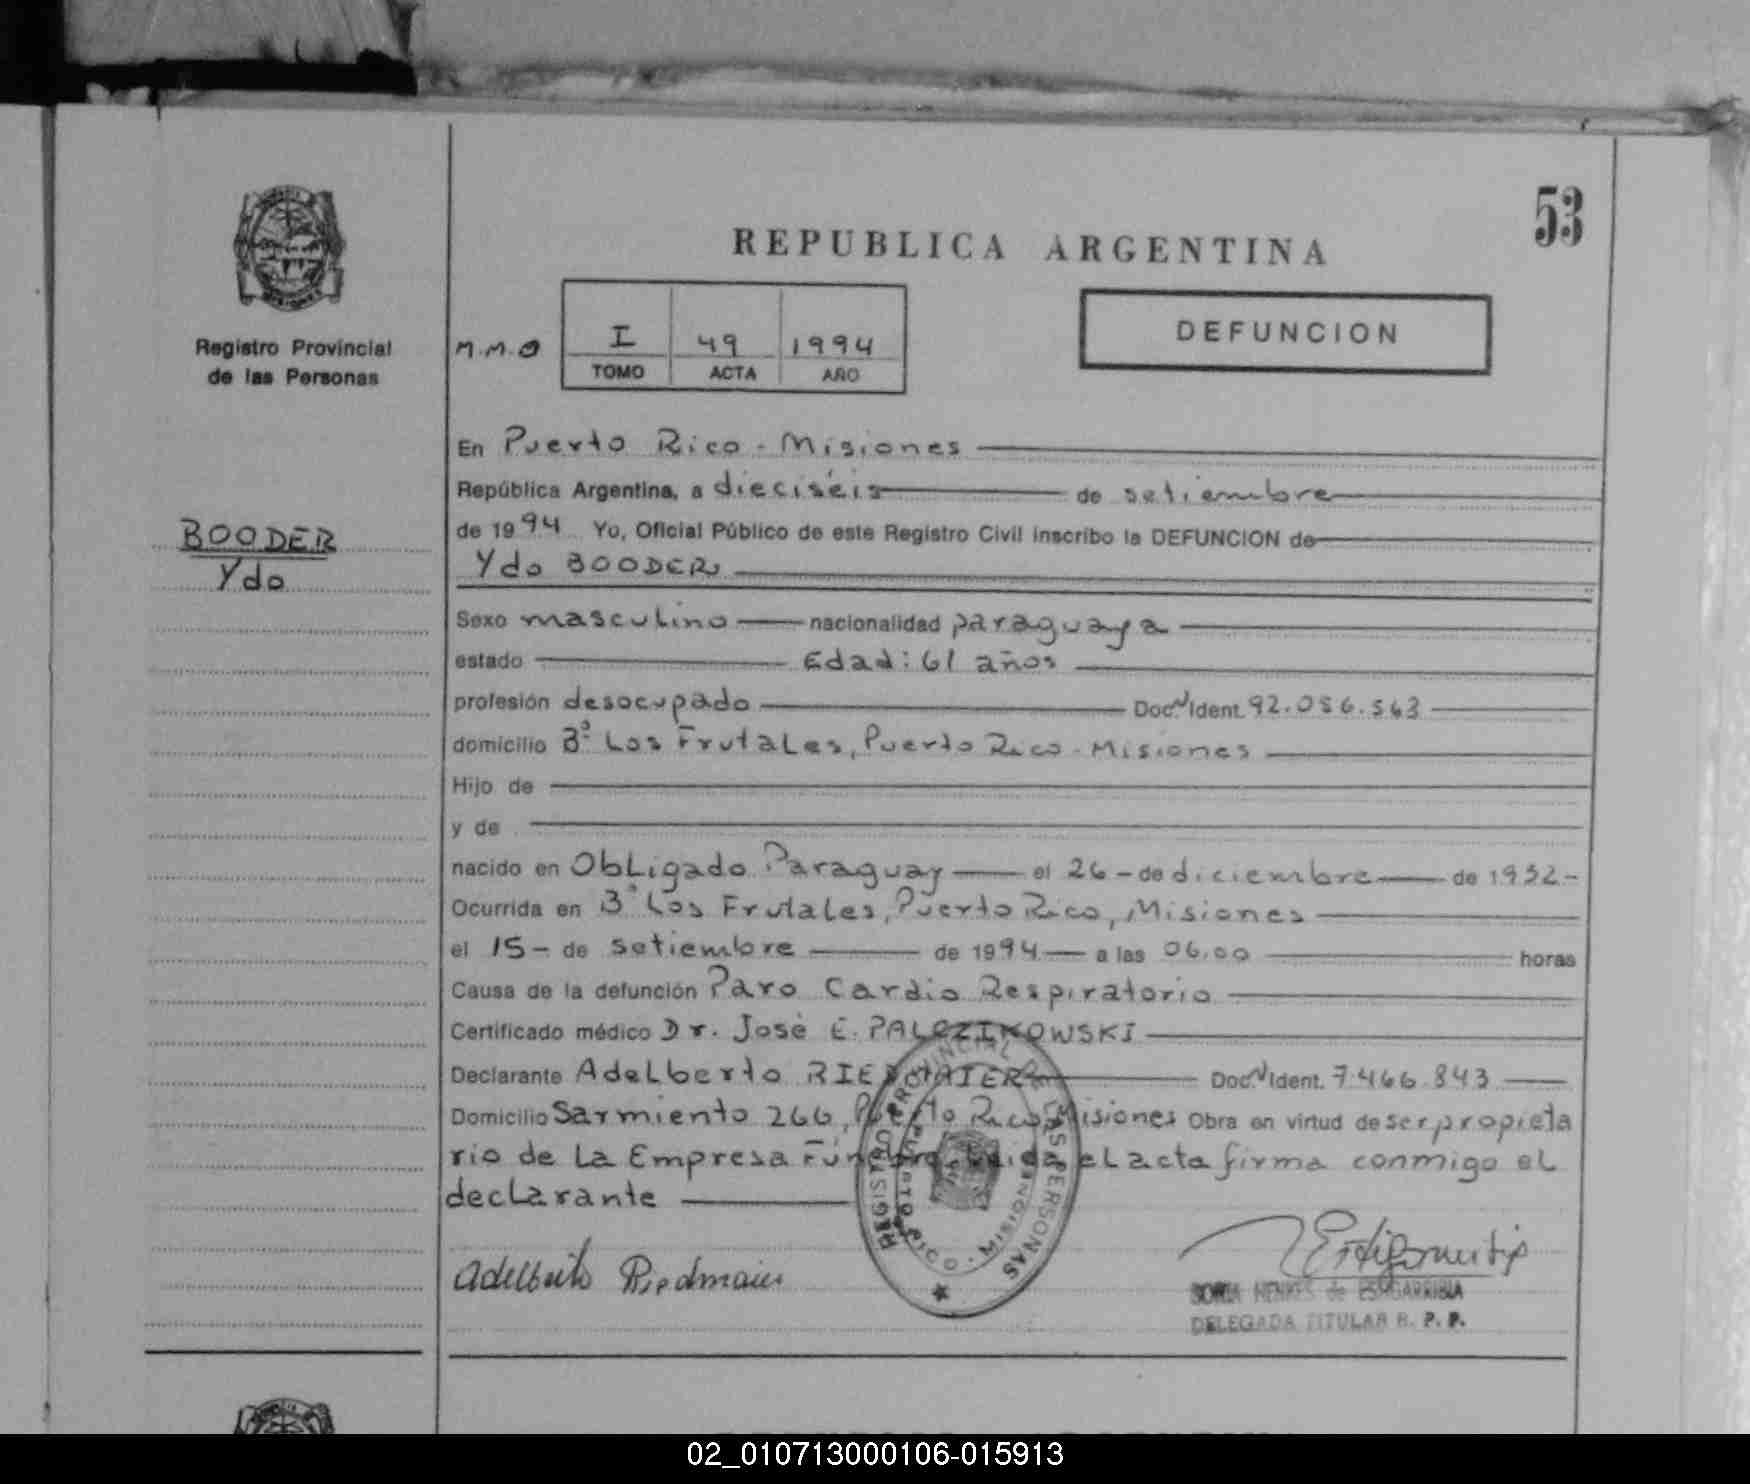 53
REPUBLICA ARGENTINA
Registro Provincial
de las Personas
M.M.O
I 49 1994
TOMO ACTA AÑO
DEFUNCION
BOODER
Ydo
En Puerto Rico - Misiones
República Argentina, a dieciséis de setiembre
de 1994 Yo, Oficial Público de este Registro Civil inscribo la DEFUNCION de
Ydo BOODER
Sexo masculino nacionalidad paraguaya
estado Edad: 61 años
profesión desocupado Doc. N Ident. 92.056.563
domicilio Bº Los Frutales, Puerto Rico - Misiones
Hijo de
y de
nacido en Obligado Paraguay el 26 - de diciembre de 1932 -
Ocurrida en Bº Los Frutales, Puerto Rico, Misiones
el 15 - de setiembre de 1994 a las 06,00 horas
Causa de la defunción Paro Cardio Respiratorio
Certificado médico Dr. José E. PALCZIKOWSKI
Declarante Adelberto RIEDMAIER Doc. N Ident. 7.466.843
Domicilio Sarmiento 266, Puerto Rico, Misiones Obra en virtud de ser propieta
rio de La Empresa Fúnebre Leida el acta firma conmigo el
declarante
REGISTRO PROVINCIAL DE LAS PERSONAS
PUERTO RICO - MISIONES
Adelberto Riedmaier
SONIA HENKES de ESMGARRIBIA
DELEGADA TITULAR R. P. P.
02_010713000106-015913